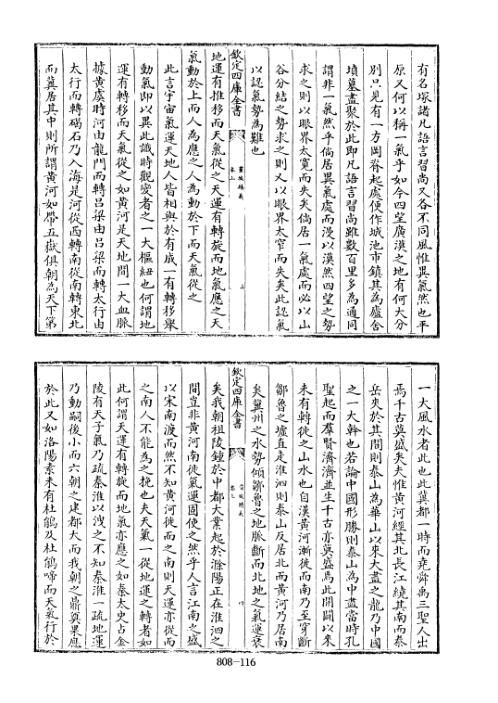 有名塚諸凡語言習尚又各不同風惟異氣然也平
原又何以稱一氣乎如今四望廣漠之地有何大分
別只見有一方岡脊起處便作城池市鎮其為廬舍
墳墓盡聚於此即凡語言習尚雖數百里多為通同
謂非一氣然乎倘居異氣處而漫以漠然四望之勢
求之則以眼界太寛而失矣倘居一氣處而必以山
谷分結之勢求之則又以眼界太窄而失矣此認氣
以認氣勢為難也
欽定四庫全書
地運有推移而天氣從之天運有轉旋而地氣應之天
氣動於上而人為應之人為動於下而天氣從之
此言宇宙氣運天地人皆相與於有成一有轉移舉
動氣即以異此識時觀變者之一大樞紐也何謂地
運有轉移而天氣從之如黄河是天地間一大血脈
據黄虞時河由龍門而轉吕梁由吕梁而轉太行由
太行而轉碣石乃入海是河從西轉南從南轉東北
而冀居其中則所謂黄河如帶五嶽俱朝為天下第
一大風水者此也此冀都一時而堯舜禹三聖人出
焉千古莫盛矣夫惟黄河經其北長江繞其南而泰
岳夾於其間則泰山為華山以來大盡之龍乃中國
之一大幹也若論中國形勝則泰山為中盡當時孔
聖起而羣賢濟濟並生千古亦莫盛焉此開闢以來
未有轉徙之山水也自漢黄河漸徙而南乃至穿斷
鄒魯之墟直走淮泗則泰山反居北而黄河乃居南
矣冀州之水勢傾鄒魯之地脈斷而北地之氣運衰
欽定四庫全書
矣我朝祖陵鍾於中都大業起於滁陽正在淮泗之
間豈非黄河南徙氣運固使之然乎人言江南之盛
以宋南渡而然不知黄河徙而之南則天運亦從而
之南人不能為之挽也夫天氣一從地運之轉者如
此何謂天運有轉旋而地氣亦應之如秦太史占金
陵有天子氣乃疏秦淮以洩之不知秦淮一疏地運
乃動嗣後小而六朝之建都大而我朝之鼎奠果應
於此又如洛陽素未有杜鵑及杜鵑啼而天氣行於
808-116